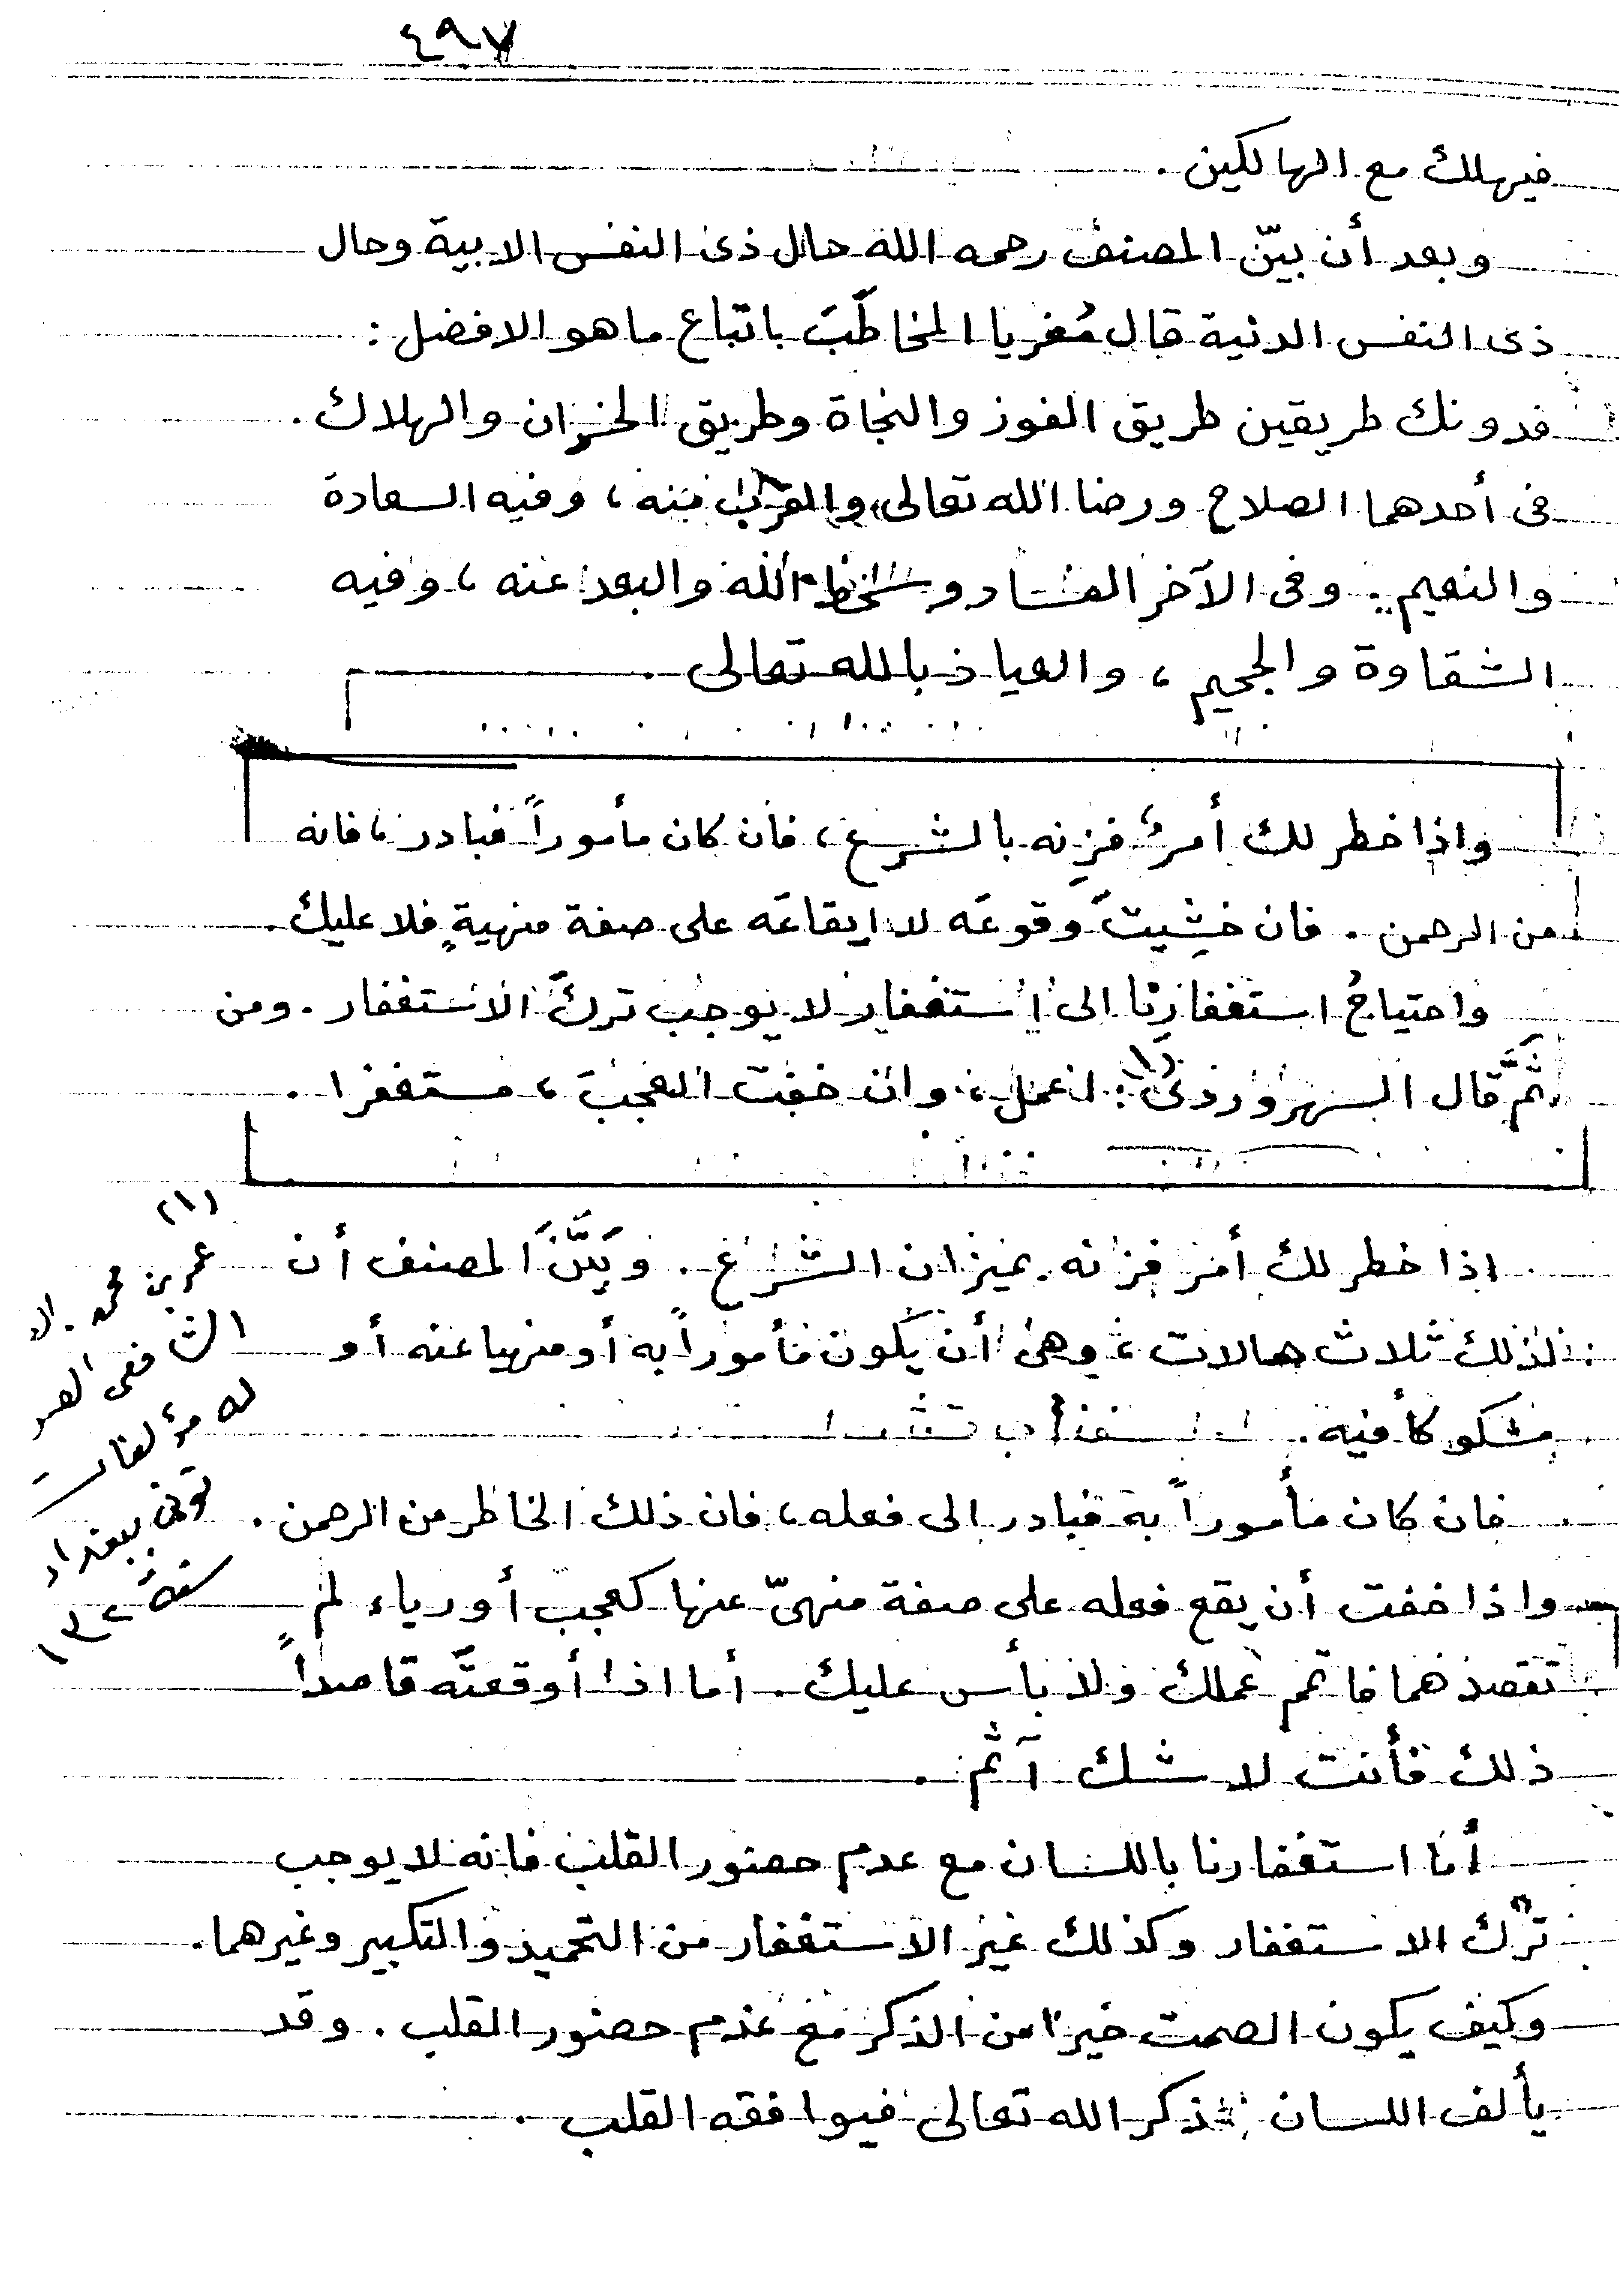 ٤٩٧
فيهلك مع الهالكين .
وبعد أن بيّن المصنف رحمه الله حال ذى النفس الابية وحال
ذى النفس الدنية قال مُغريا المخاطَبَ باتباع ما هو الافضل :
فدونك طريقين طريق الفوز والنجاة وطريق الخسران والهلاك .
فى أحدهما الصلاح ورضا الله تعالى والقرب منه ، وفيه السعادة
والنعيم . وفى الآخر الفساد وسخط الله والبعد عنه ، وفيه
الشقاوة والجحيم ، والعياذ بالله تعالى .
واذا خطر لك أمرٌ فزِنه بالشرع ، فان كان مأموراً فبادر ، فانه
من الرحمن . فان خشِيتَ وقوعَه لا ايقاعَه على صفة منهيةٍ فلا عليك .
واحتياجُ استغفارِنا الى استغفار لا يوجب تركَ الاستغفار . ومن
ثَمَّ قال السهروردى (١) : اعمل ، وان خفت العجبَ ، مستغفرا .
اذا خطر لك أمر فزنه بميزان الشرع . وبَيَّنَ المصنف أن
لذلك ثلاث حالات ، وهى أن يكون مأموراً به أو منهيا عنه أو
مشكوكاً فيه .
فان كان مأموراً به فبادر الى فعله ، فان ذلك الخاطر من الرحمن .
واذا خفت أن يقع فعله على صفة منهىّ عنها كعجب أو رياء لم
تقصدهما فاتمم عملك ولا بأس عليك . أما اذا أوقعتَه قاصداً
ذلك فأنت لا شك آثم .
أما استغفارنا باللسان مع عدم حضور القلب فانه لا يوجب
ترك الاستغفار وكذلك غير الاستغفار من التحميد والتكبير وغيرهما .
وكيف يكون الصمت خيرا من الذكر مع عدم حضور القلب . وقد
يألف اللسان ذكر الله تعالى فيوافقه القلب .
(١)
عمر بن محمد
الشافعى
له مؤلفات
توفى ببغداد
سنة